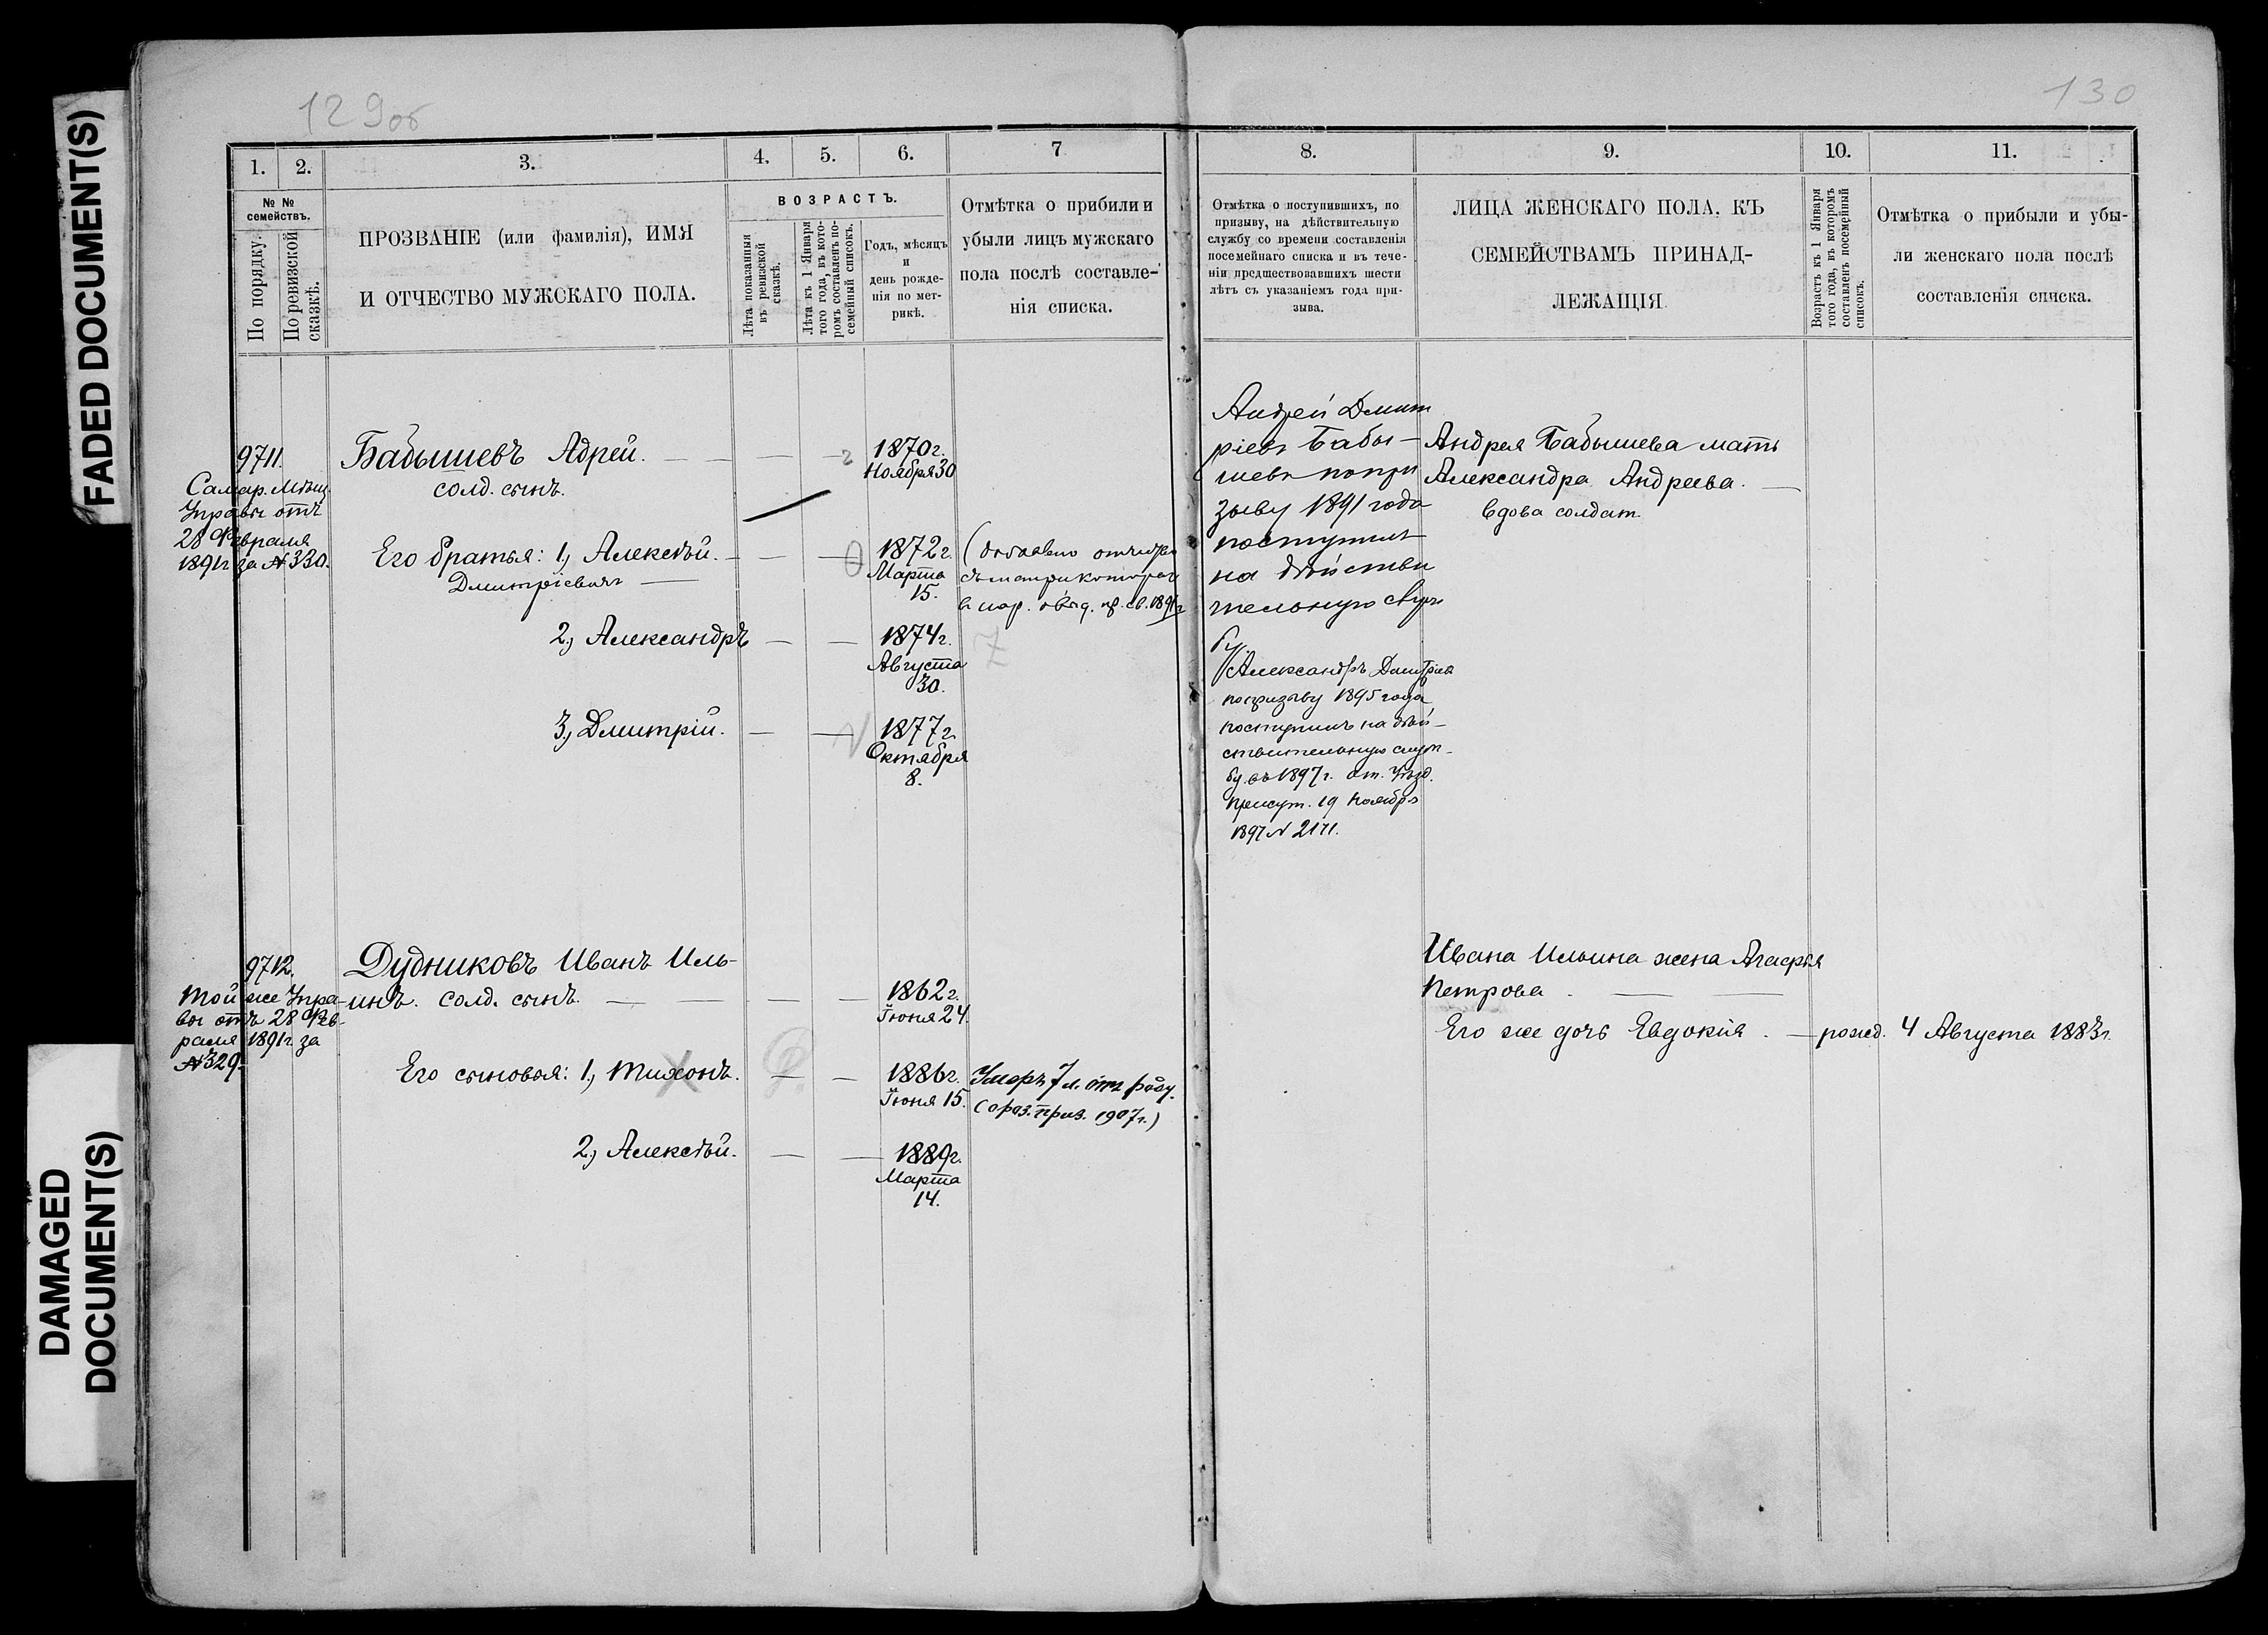 FADED DOCUMENT(S)
DAMAGED
DOCUMENT(S)
129об
130
1.
2.
3.
4.
5.
6.
7
№ №
семействъ.
По порядку.
По ревизской
сказкѣ.
ПРОЗВАНІЕ (или фамилія), ИМЯ
И ОТЧЕСТВО МУЖСКАГО ПОЛА.
ВОЗРАСТЪ.
Лѣта показанныя
въ ревизской
сказкѣ.
Лѣта къ 1 Января
того года, въ кото-
ромъ составленъ по-
семейный списокъ.
Годъ, мѣсяцъ
и
день рожде-
нія по мет-
рикѣ.
Отмѣтка о прибыли и
убыли лицъ мужскаго
пола послѣ составле-
нія списка.
9711.
Самар. Мѣщ.
Управы отъ
28 Февраля
1891г. за № 330.
Бабышевъ Адрей.
солд. сынъ.
1870г.
Ноября 30
Его братья: 1, Алексѣй.
Дмитріевичъ
1872г.
Марта
15.
(добавлено
2, Александръ
1874г.
Августа
30.
3, Дмитрій.
1877г.
Октября
8.
9712.
Той же Упра-
вы отъ 28 Фев-
раля 1891г. за
№ 329.
Дудниковъ Иванъ Иль-
инъ. солд. сынъ.
1862г.
Іюня 24.
Его сыновья: 1, Тихонъ.
1886г.
Іюня 15.
Умеръ 7 л. отъ роду.
(приз. 1907г.)
2, Алексѣй.
1889г.
Марта
14.
8.
9.
10.
11.
Отмѣтка о поступившихъ, по
призыву, на дѣйствительную
службу со времени составленія
посемейнаго списка и въ тече-
ніи предшествовавшихъ шести
лѣтъ съ указаніемъ года при-
зыва.
ЛИЦА ЖЕНСКАГО ПОЛА, КЪ
СЕМЕЙСТВАМЪ ПРИНАД-
ЛЕЖАЩІЯ
Возрастъ къ 1 Января
того года, въ которомъ
составленъ посемейный
списокъ.
Отмѣтка о прибыли и убы-
ли женскаго пола послѣ
составленія списка.
Андрей Дмит
ріевъ Бабы-
шевъ по при
зыву 1891 года
поступилъ
на дѣйстви
тельную служ
бу.
Александръ Дмитріевъ
по призыву 1895 года
поступилъ на дѣй-
ствительную служ-
бу въ 1897г. от. Уѣзд.
Присут. 19 Ноября
1897 № 2171.
Андрея Бабышева мать
Александра Андреева.
вдова солдат.
Ивана Ильина жена Агафья
Петрова.
Его же дочь Евдокія. — рожд. 4 Августа 1883г.